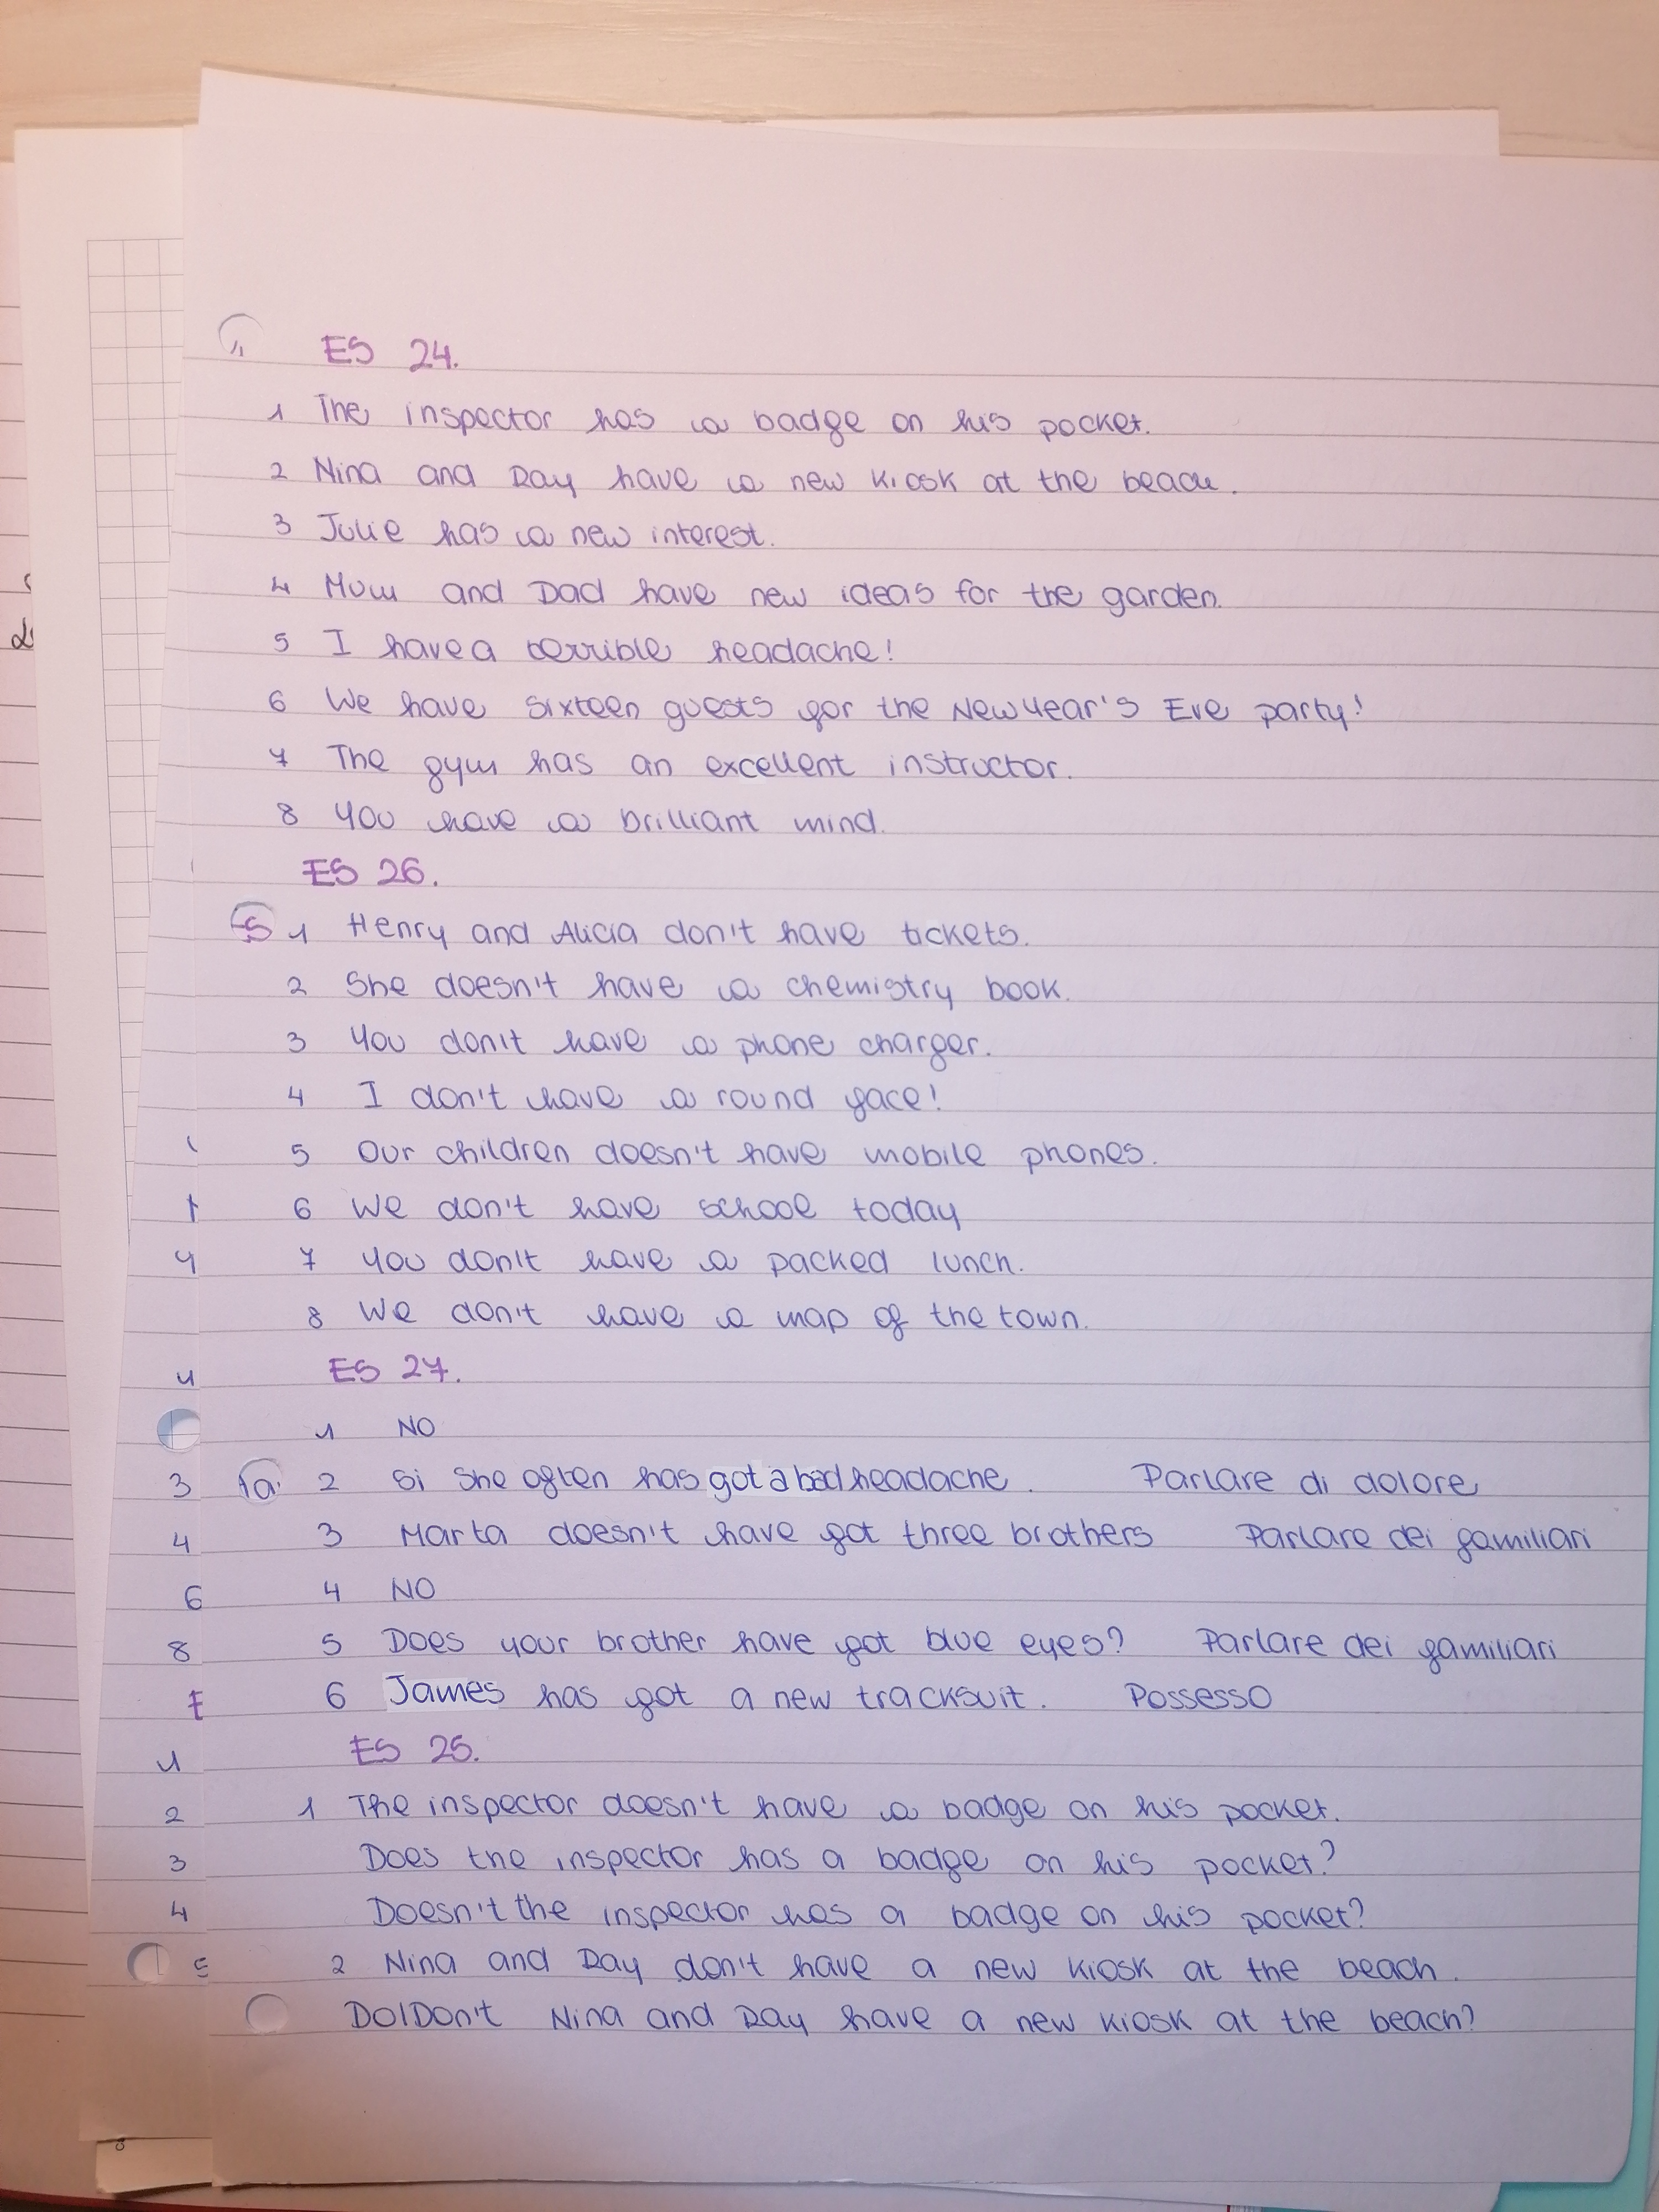 ES 24.
1 The inspector has a badge on his pocket.
2 Nina and Ray have a new kiosk at the beach.
3 Julie has a new interest.
4 Mum and Dad have new ideas for the garden.
5 I have a terrible headache!
6 We have sixteen guests for the New Year's Eve party!
7 The gym has an excellent instructor.
8 You have a brilliant mind.
ES 26.
1 Henry and Alicia don't have tickets.
2 She doesn't have a chemistry book.
3 You don't have a phone charger.
4 I don't have a round face!
5 Our children doesn't have mobile phones.
6 We don't have school today
7 You don't have a packed lunch.
8 We don't have a map of the town.
ES 27.
1 NO
2 Si She often has got a bad headache. Parlare di dolore
3 Marta doesn't have got three brothers Parlare dei familiari
4 NO
5 Does your brother have got blue eyes? Parlare dei familiari
6 James has got a new tracksuit. Possesso
ES 25.
1 The inspector doesn't have a badge on his pocket.
Does the inspector has a badge on his pocket?
Doesn't the inspector has a badge on his pocket?
2 Nina and Ray don't have a new kiosk at the beach.
Do/Don't Nina and Ray have a new kiosk at the beach?